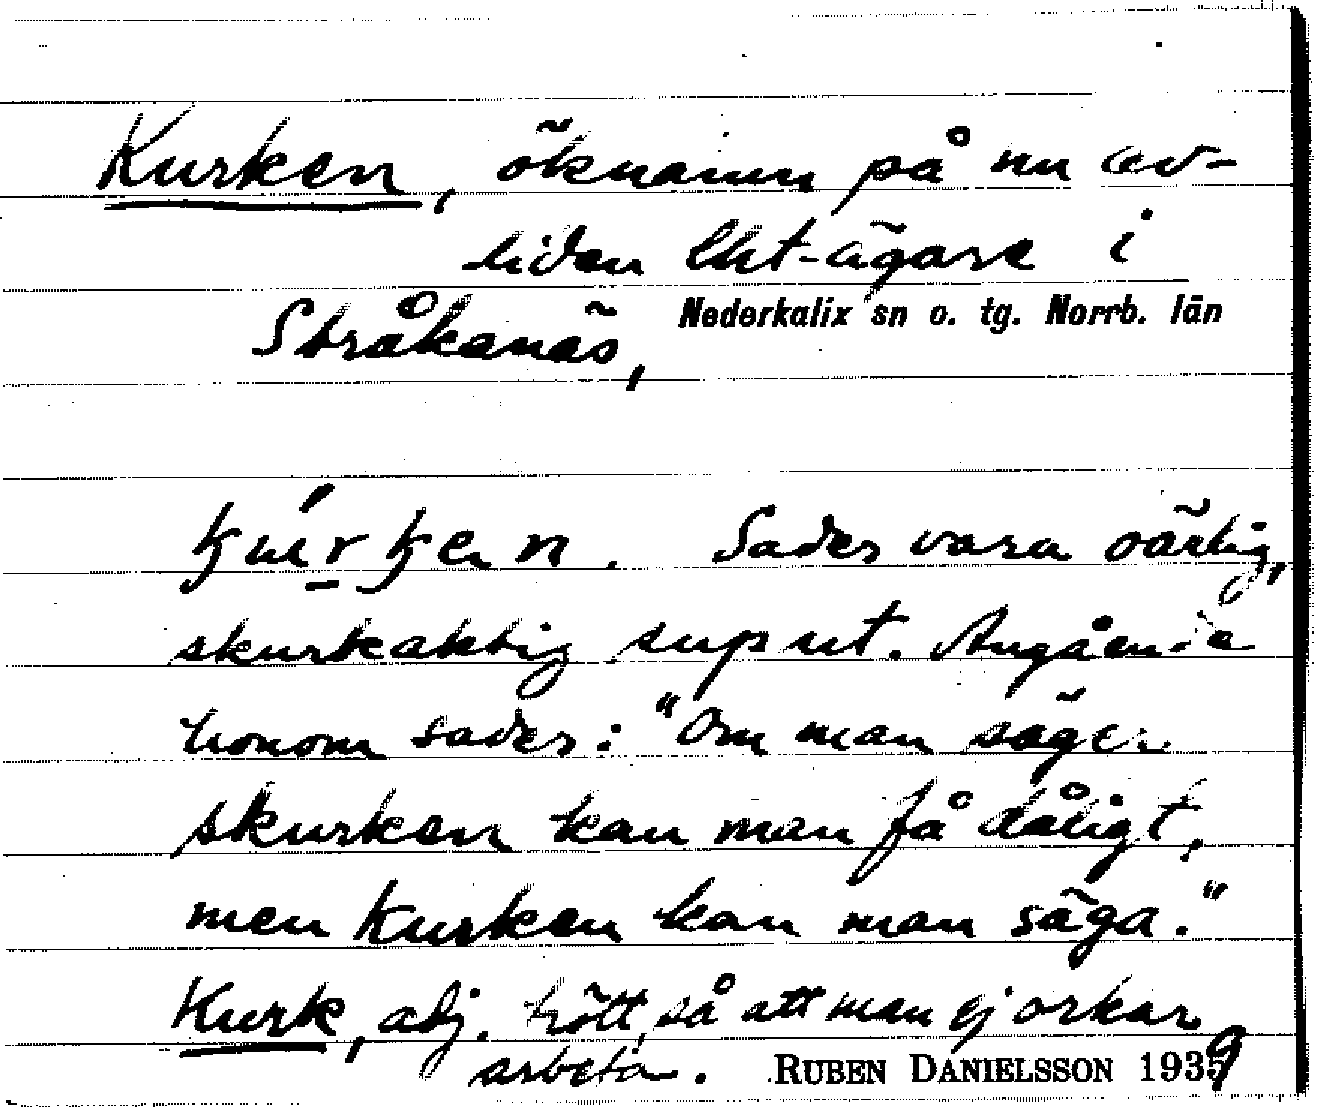 Kurken, öknamn på nu av-
liden lht-ägare i
Stråkanäs, Nederkalix sn o. tg. Norrb. län
kúrken. Sades vara oärlig,
skurkaktig suput. Angående
honom sades: "Om man säger
skurken kan man få dåligt,
men Kurken kan man säga."
Kurk, adj. trött, så att man ej orkar
arbeta. RUBEN DANIELSSON 1939